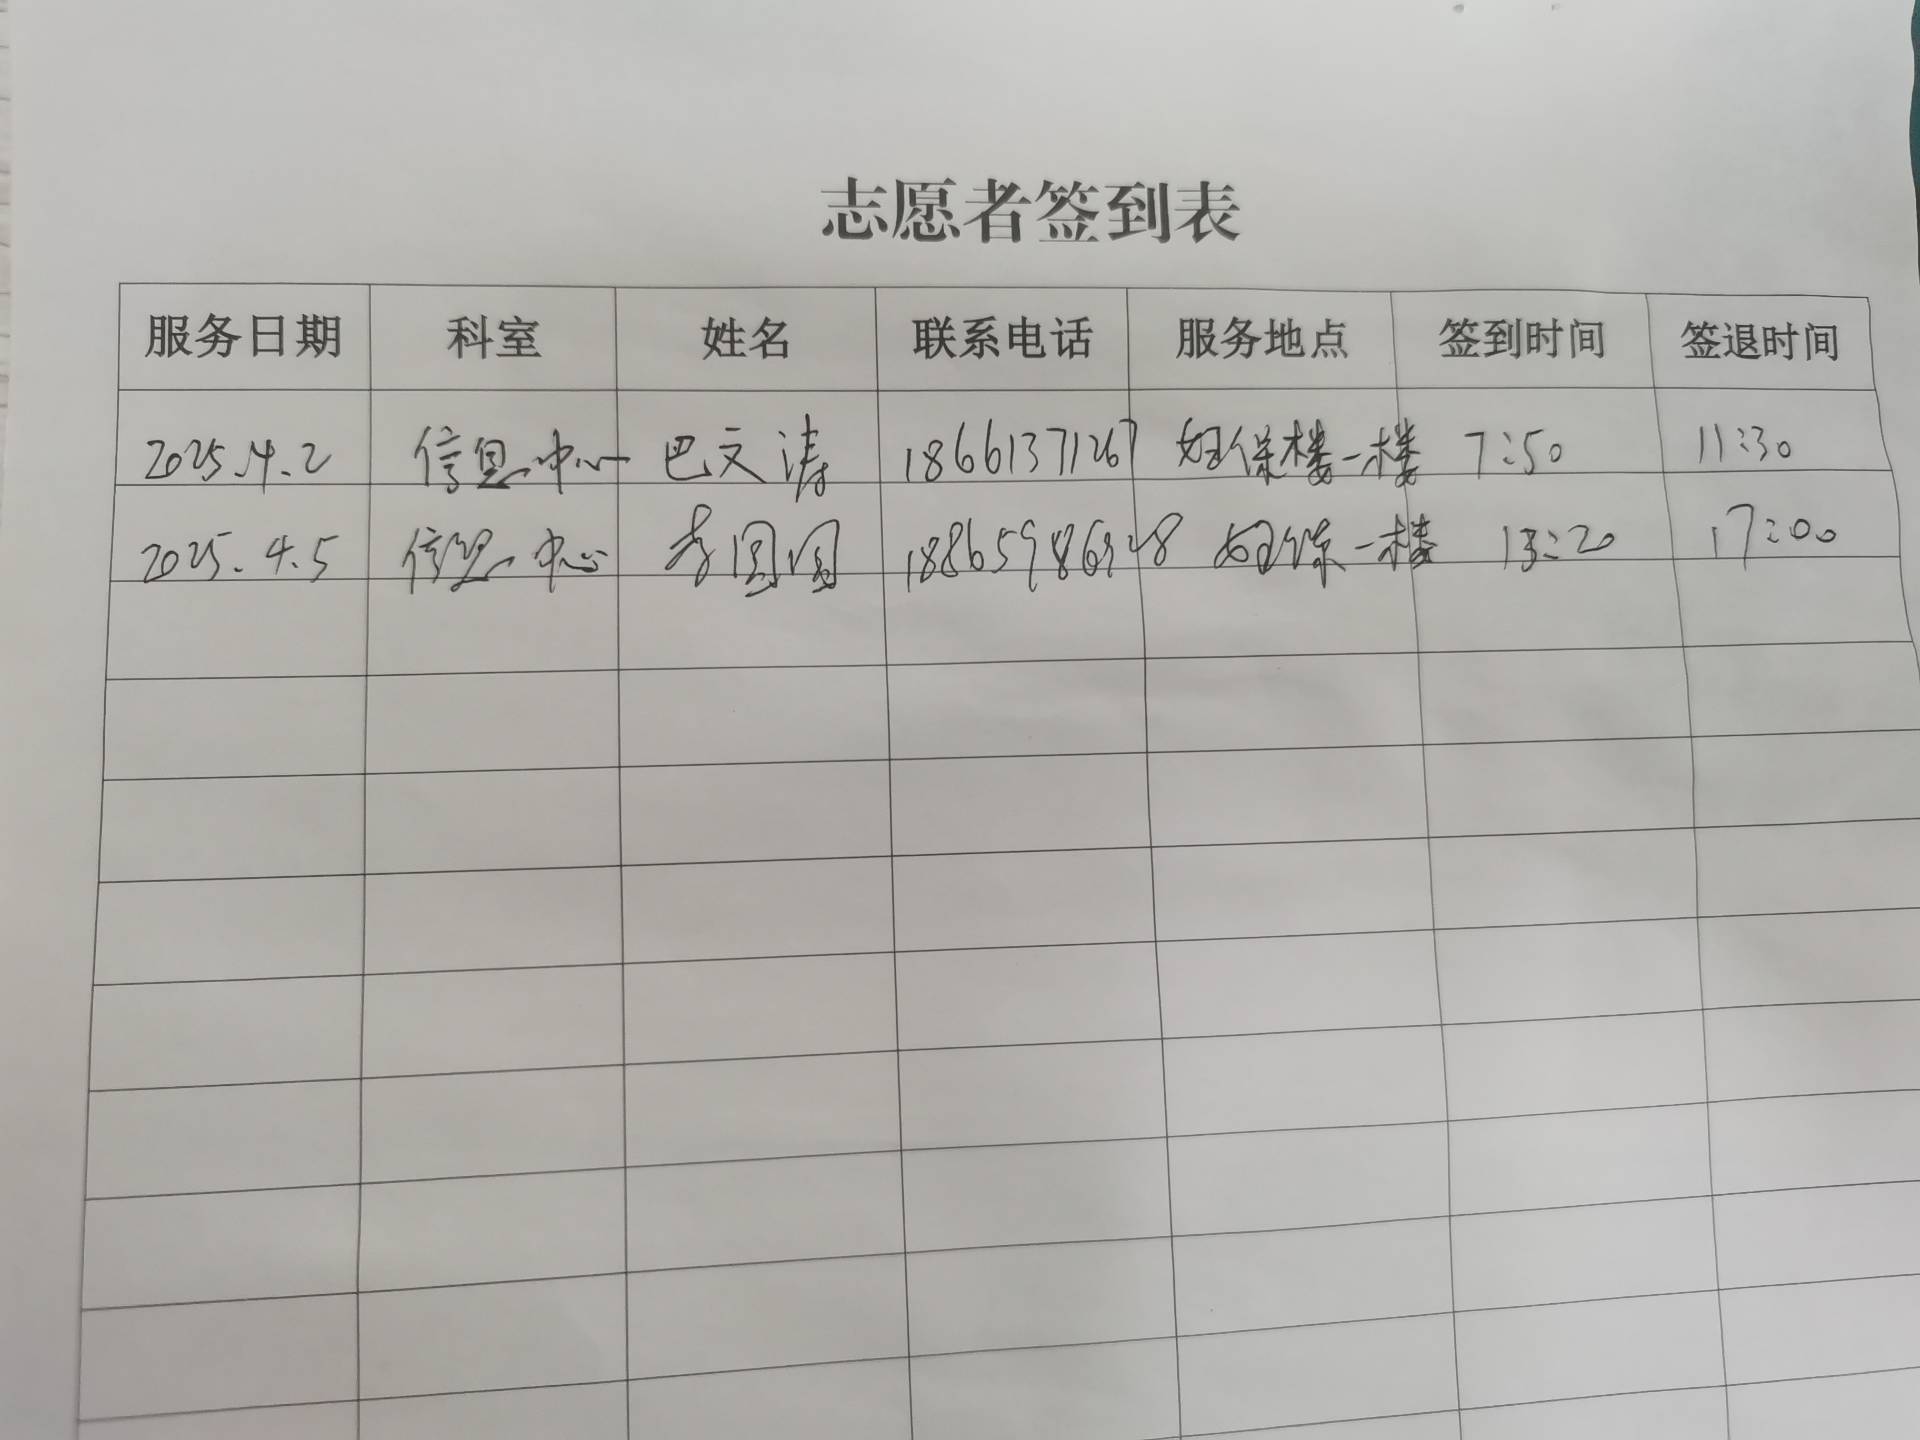 志愿者签到表
服务日期 科室 姓名 联系电话 服务地点 签到时间 签退时间
2025.4.2 信息中心 巴文涛 18661371267 妇保楼一楼 7:50 11:30
2025.4.5 信息中心 李圆圆 妇保一楼 13:20 17:00